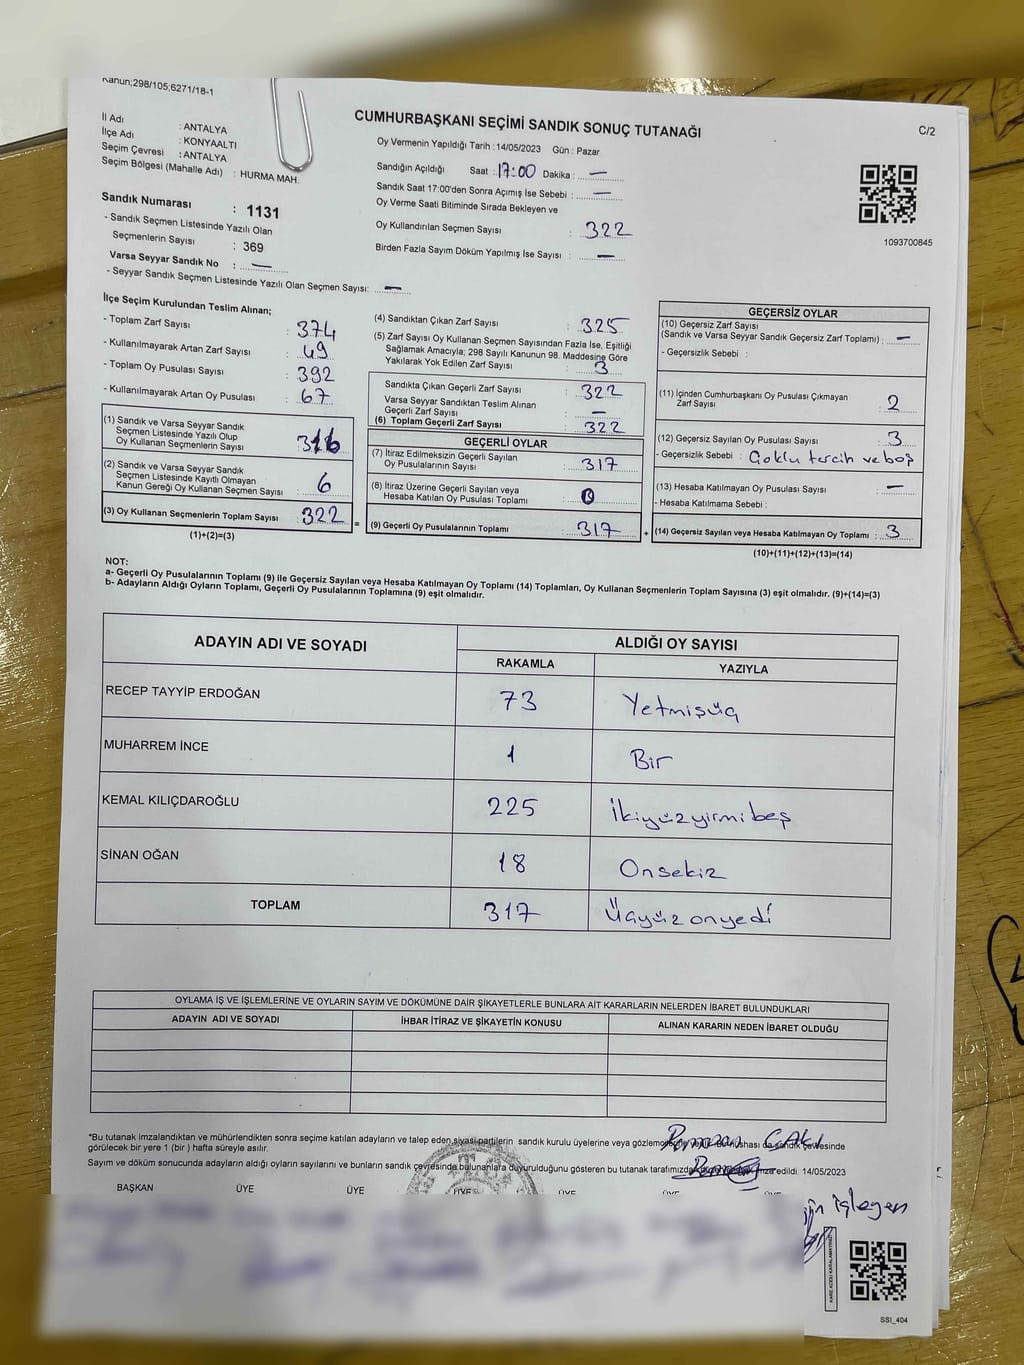 Kanun;298/105;6271/18-1
CUMHURBAŞKANI SEÇİMİ SANDIK SONUÇ TUTANAĞI
C/2
İl Adı : ANTALYA
İlçe Adı : KONYAALTI
Seçim Çevresi : ANTALYA
Seçim Bölgesi (Mahalle Adı) : HURMA MAH.
Sandık Numarası : 1131
- Sandık Seçmen Listesinde Yazılı Olan
Seçmenlerin Sayısı : 369
Varsa Seyyar Sandık No : —
- Seyyar Sandık Seçmen Listesinde Yazılı Olan Seçmen Sayısı: —
Oy Vermenin Yapıldığı Tarih : 14/05/2023 Gün : Pazar
Sandığın Açıldığı Saat : 17:00 Dakika : —
Sandık Saat 17:00'den Sonra Açımış İse Sebebi : —
Oy Verme Saati Bitiminde Sırada Bekleyen ve
Oy Kullandırılan Seçmen Sayısı : 322
Birden Fazla Sayım Döküm Yapılmış İse Sayısı : —
1093700845
İlçe Seçim Kurulundan Teslim Alınan;
- Toplam Zarf Sayısı : 374
- Kullanılmayarak Artan Zarf Sayısı : 49
- Toplam Oy Pusulası Sayısı : 392
- Kullanılmayarak Artan Oy Pusulası : 67
(1) Sandık ve Varsa Seyyar Sandık
Seçmen Listesinde Yazılı Olup
Oy Kullanan Seçmenlerin Sayısı : 316
(2) Sandık ve Varsa Seyyar Sandık
Seçmen Listesinde Kayıtlı Olmayan
Kanun Gereği Oy Kullanan Seçmen Sayısı : 6
(3) Oy Kullanan Seçmenlerin Toplam Sayısı : 322
(1)+(2)=(3)
(4) Sandıktan Çıkan Zarf Sayısı : 325
(5) Zarf Sayısı Oy Kullanan Seçmen Sayısından Fazla İse, Eşitliği
Sağlamak Amacıyla; 298 Sayılı Kanunun 98. Maddesine Göre
Yakılarak Yok Edilen Zarf Sayısı : 3
Sandıkta Çıkan Geçerli Zarf Sayısı : 322
Varsa Seyyar Sandıktan Teslim Alınan
Geçerli Zarf Sayısı : —
(6) Toplam Geçerli Zarf Sayısı : 322
=
GEÇERLİ OYLAR
(7) İtiraz Edilmeksizin Geçerli Sayılan
Oy Pusulalarının Sayısı : 317
(8) İtiraz Üzerine Geçerli Sayılan veya
Hesaba Katılan Oy Pusulası Toplamı :
(9) Geçerli Oy Pusulalarının Toplamı : 317
+
GEÇERSİZ OYLAR
(10) Geçersiz Zarf Sayısı
(Sandık ve Varsa Seyyar Sandık Geçersiz Zarf Toplamı) : —
- Geçersizlik Sebebi :
(11) İçinden Cumhurbaşkanı Oy Pusulası Çıkmayan
Zarf Sayısı : 2
(12) Geçersiz Sayılan Oy Pusulası Sayısı : 3
- Geçersizlik Sebebi : Çoklu tercih ve boş
(13) Hesaba Katılmayan Oy Pusulası Sayısı : —
- Hesaba Katılmama Sebebi :
(14) Geçersiz Sayılan veya Hesaba Katılmayan Oy Toplamı : 3
(10)+(11)+(12)+(13)=(14)
NOT:
a- Geçerli Oy Pusulalarının Toplamı (9) ile Geçersiz Sayılan veya Hesaba Katılmayan Oy Toplamı (14) Toplamları, Oy Kullanan Seçmenlerin Toplam Sayısına (3) eşit olmalıdır. (9)+(14)=(3)
b- Adayların Aldığı Oyların Toplamı, Geçerli Oy Pusulalarının Toplamına (9) eşit olmalıdır.
ADAYIN ADI VE SOYADI ALDIĞI OY SAYISI
RAKAMLA YAZIYLA
RECEP TAYYİP ERDOĞAN 73 Yetmişüç
MUHARREM İNCE 1 Bir
KEMAL KILIÇDAROĞLU 225 İkiyüzyirmibeş
SİNAN OĞAN 18 Onsekiz
TOPLAM 317 Üçyüzonyedi
OYLAMA İŞ VE İŞLEMLERİNE VE OYLARIN SAYIM VE DÖKÜMÜNE DAİR ŞİKAYETLERLE BUNLARA AİT KARARLARIN NELERDEN İBARET BULUNDUKLARI
ADAYIN ADI VE SOYADI İHBAR İTİRAZ VE ŞİKAYETİN KONUSU ALINAN KARARIN NEDEN İBARET OLDUĞU
*Bu tutanak imzalandıktan ve mühürlendikten sonra seçime katılan adayların ve talep eden siyasi partilerin sandık kurulu üyelerine veya
görülecek bir yere 1 (bir ) hafta süreyle asılır.
Sayım ve döküm sonucunda adayların aldığı oyların sayılarını ve bunların sandık çevresinde bulunanlara duyurulduğunu gösteren bu tutanak edildi. 14/05/2023
BAŞKAN ÜYE ÜYE ÜYE ÜYE ÜYE
işleyen
SSI_404